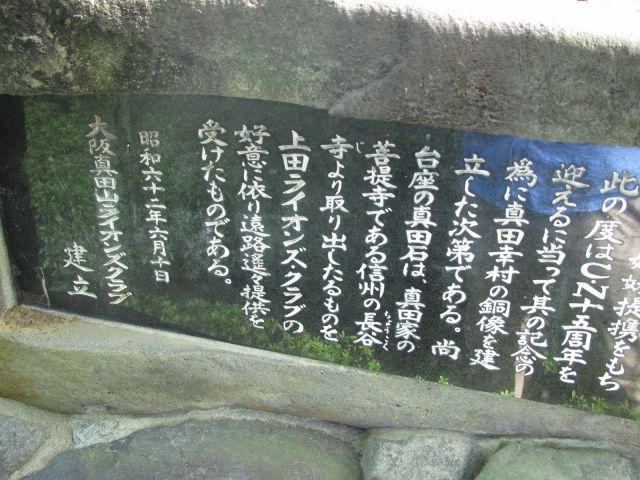 姉妹提携をもち
此の度はCN十五周年を
迎えるに当って其の記念の
為に真田幸村の銅像を建
立した次第である。尚
台座の真田石は、真田家の
菩提寺である信州の長谷
ちょうこく
寺より取り出したるものを
じ
上田ライオンズ・クラブの
好意に依り遠路遥々提供を
受けたものである。
昭和六十二年六月十日
大阪真田山ライオンズクラブ
建立